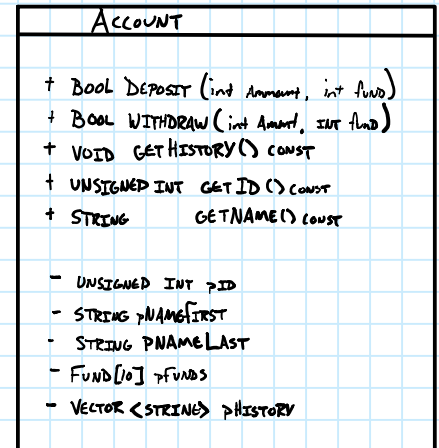 ACCOUNT
+ BOOL DEPOSIT (int Ammount, int fund)
+ BOOL WITHDRAW (int Amount, INT fund)
+ VOID GETHISTORY() CONST
+ UNSIGNED INT GETID() CONST
+ STRING GETNAME() CONST
- UNSIGNED INT pID
- STRING pNAMEFIRST
- STRING PNAMELAST
- FUND[10] pFUNDS
- VECTOR <STRING> pHISTORY